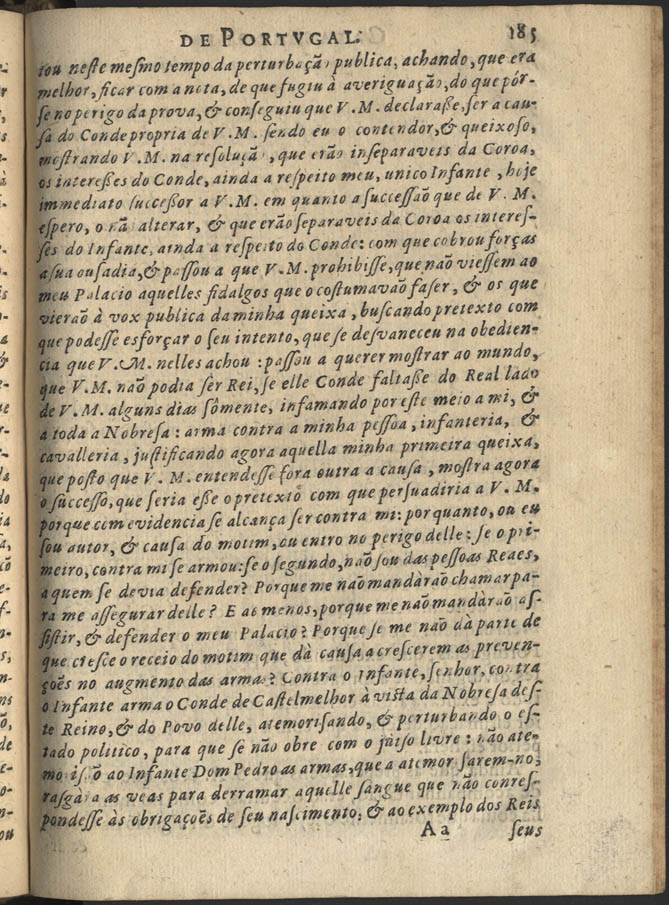 DE PORTVGAL. 185
tou neſte meſmo tempo da perturbaçaõ publica, achando, que era
melhor, ficar com a nota, de que fugiu à averiguaçaõ, do que pór-
ſe no perigo da prova, & conſeguiu que V. M. declaraße, ſer a cau-
ſa do Conde propria de V. M. ſendo eu o contendor, & queixoſo,
moſtrando V. M. na reſoluçaõ, que eraõ inſeparaveis da Coroa,
os intereßes do Conde, ainda a reſpeito meu, unico Infante, hoje
immediato ſucceßor a V. M. em quanto a ſucceſſaõ que de V. M.
eſpero, o naõ alterar, & que eraõ ſeparaveis da Coroa os intereſ-
ſes do Infante, ainda a reſpeito do Conde: com que cobrou forças
a ſua ouſadia, & paſſou a que V. M. prohibiſſe, que não vieſſem ao
meu Palacio aquelles fidalgos que o coſtumavaõ faſer, & os que
vieraõ à vox publica da minha queixa, buſcando pretexto com
que podeſſe esforçar o ſeu intento, que ſe deſvaneceu na obedien-
cia que V. M. nelles achou: paſſou a querer moſtrar ao mundo,
que V. M. naõ podia ſer Rei, ſe elle Conde faltaße do Real lado
de V. M. alguns dias ſômente, infamando por eſte meio a mi, &
a toda a Nobreſa: arma contra a minha peſſoa, infanteria, &
cavalleria, juſtificando agora aquella minha primeira queixa,
que poſto que V. M. entendeſſe fora outra a cauſa, moſtra agora
o ſucceſſo, que ſeria eße o pretexto com que perſuadiria a V. M.
porque com evidencia ſe alcança ſer contra mi: porquanto, ou eu
ſou autor, & cauſa do motim, ou entro no perigo delle: ſe o pri-
meiro, contra mi ſe armou: ſe o ſegundo, naõ ſou das peſſoas Reaes,
a quem ſe devia defender? Porque me naõ mandàraõ chamar pa-
ra me aſſegurar delle? E ao menos, porque me naõ mandàraõ aſ-
ſiſtir, & defender o meu Palacio? Porque ſe me naõ dà parte de
que creſce o receio do motim que dà cauſa a creſcerem as preven-
çoẽs no augmento das armas? Contra o Infante, ſenhor, contra
o Infante arma o Conde de Caſtelmelhor à viſta da Nobreſa deſ-
te Reino, & do Povo delle, atemoriſando, & perturbando o eſ-
tado politico, para que ſe não obre com o juiſo livre: não ate-
moriſaõ ao Infante Dom Pedro as armas, que a atemoriſarem-no,
raſgàra as veas para derramar aquelle ſangue que não conreſ-
pondeſſe às obrigaçoẽs de ſeu naſcimento; & ao exemplo dos Reis
A a ſeus